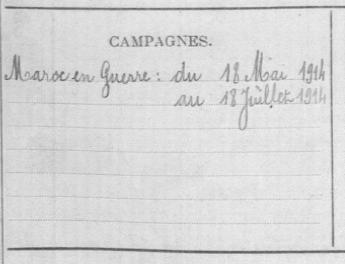 CAMPAGNES.
Maroc en Guerre : du 18 Mai 1914
au 18 Juillet 1914